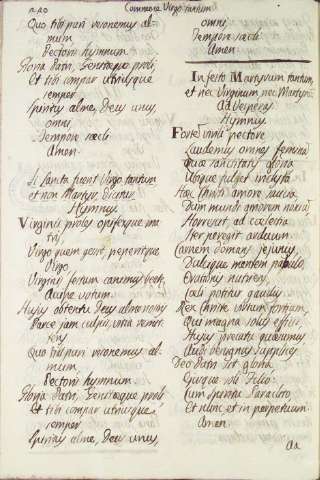 220
Commune Virgo tantum
Quo tibi puri resonemus al-
mum
Pectoris hymnum
Gloria Patri, Genitæque proli,
Et tibi compar utriusque
semper
Spiritus alme, Deus unus,
omni
Tempore sæcli
Amen.
Si Sancta fuerit Virgo tantum
et non Martyr, dicitur
Hymnus
Virginis proles opifexque ma-
tris,
Virgo quem gessit, peperitque
Virgo
Virginis festum canimus beatæ,
Accipe votum.
Hujus obtentu Deus alme nostris
Parce jam culpis, vitia remit-
tens
Quo tibi puri resonemus al-
mum,
Pectoris hymnum.
Gloria Patri, Genitæque proli,
Et tibi compar utriusque
semper
Spiritus alme, Deus unus,
omni
Tempore sæcli
Amen
In festo Martyrum tantum,
et nec Virginum, nec Martyrum
Ad Vesperas
Hymnus
Fortem virili pectore
Laudemus omnes feminam
Quæ sanctitatis gloria
Ubique fulget inclyta
Hæc Christi amore saucia
Dum mundi amorem noxium
Horrescit, ad cælestia
Iter peregit arduum
Carnem domans jejuniis,
Dulcique mentem pabulo,
Orationis nutriens,
Cœli potitur gaudiis
Rex Christe virtus fortium,
Qui magna solus efficis,
Hujus precatu quæsumus
Audi benignus supplices
Deo Patri sit gloria
Ejusque soli Filio
Cum Spiritu Paraclito,
Et nunc, et in perpetuum.
Amen